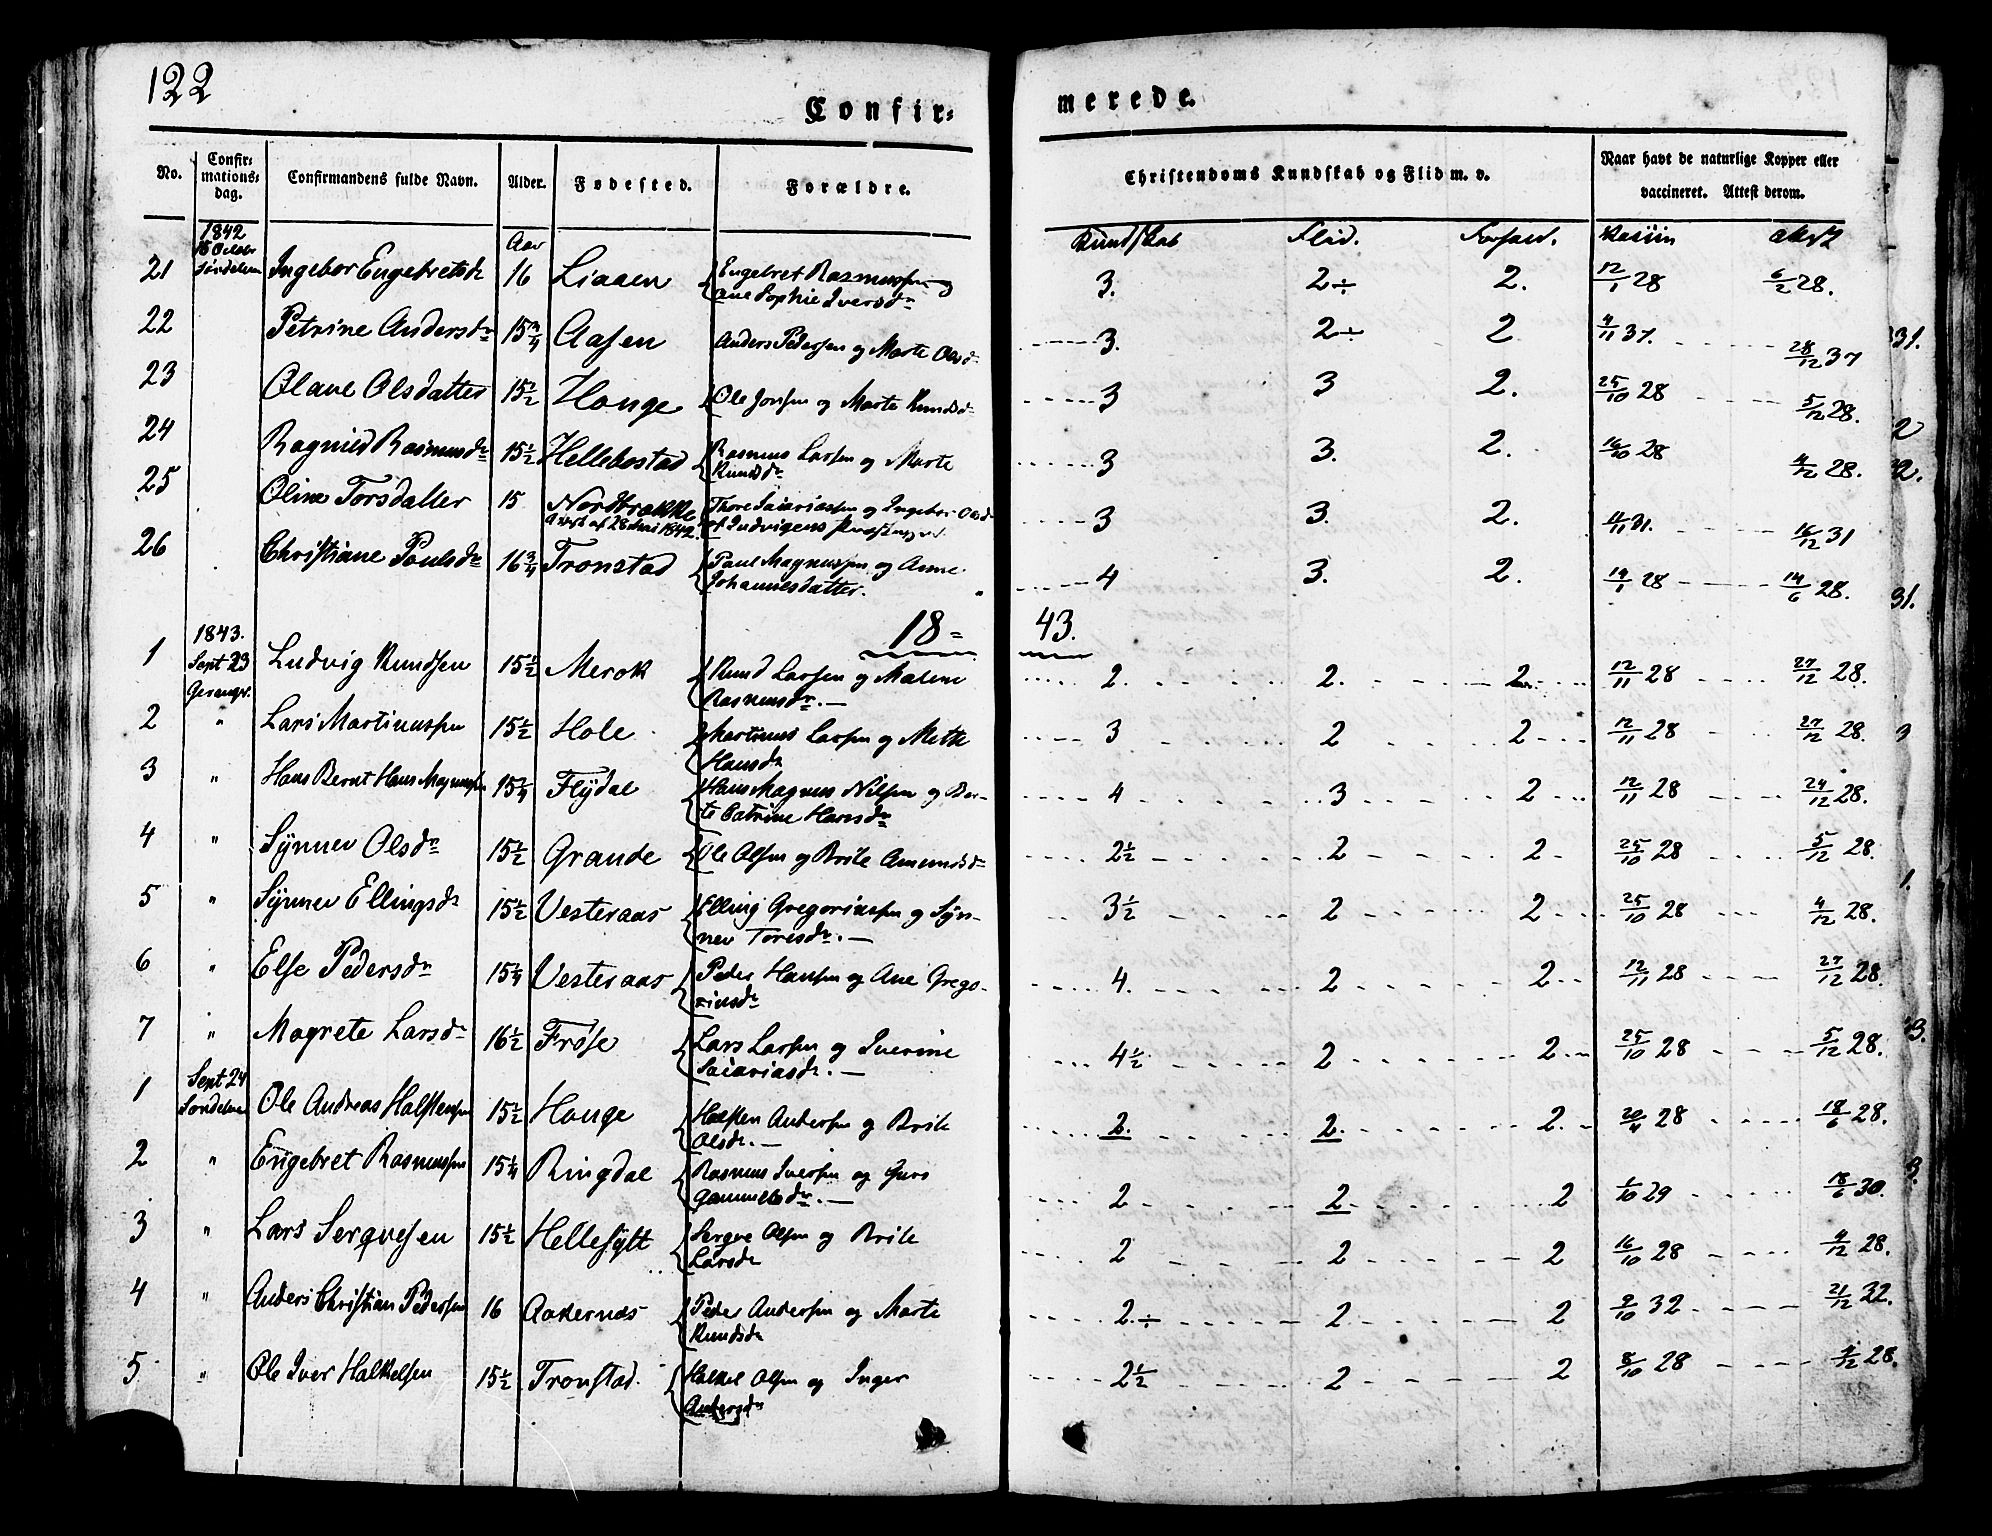 122
Confir=
merede.
No. Confir=mations=dag. Confirmandens fulde Navn. Alder. Fødested. Forældre. Christendoms Kundskab og Flid m. v. Naar havt de naturlige Kopper eller vaccineret. Attest derom.
1842 15 October Søndelven Aar Kundskab Flid. Forhold. Vaccin attest
21 Ingebor Engebretsdr 16 Liaaen Engebret Rasmussen og Ane Sophie Iversdr 3. 2÷ 2. 12/1 28 6/2 28.
22 Petrine Andersdr 15 3/4 Aasen Anders Pedersen og Marte Olsdr 3. 2÷ 2 4/11 37. 28/12 37
23 Olave Olsdatter 15 1/2 Houge Ole Jonsen og Marte Knudsdr 3 3 2. 25/10 28 5/12 28.
24 Ragnild Rasmusdr 15 1/2 Hellebostad Rasmus Larsen og Marte Knudsdr 3 3. 2. 16/10 28 4/12 28.
25 Oline Torsdatter 15 Nordtrække Thore Saiariassen og Ingebor Olsd 3 3. 2. 11/11 31. 16/12 31
26 Christiane Poulsdr 16 3/4 Tronstad Paul Magnussen og Anne Johannesdatter. 4 3. 2. 19/1 28 14/6 28.
18= 43.
1 1843. Sept 23 Geranger. Ludvig Knudsen 15 1/2 Merok Knud Larsen og Malene Rasmusdr.— 2. 2. 2. 12/11 28 27/12 28.
2 " Lars Martinussen 15 1/2 Hole Martinus Larsen og Mette Hansdr 3 2 2 12/11 28 27/12 28.
3 " Hans Bernt Hans Magnussen 15 1/4 Flÿdal Hans Magnus Nilsen og Berte Catrine Hansdr 4 3 2 12/11 28 24/12 28.
4 " Sÿnnev Olsdr 15 1/2 Grande Ole Olsen og Brite Amundsdr 2 1/2 2 2 25/10 28 5/12 28.
5 " Sÿnnev Ellingsdr 15 1/2 Vesteraas Elling Gregoriussen og Sÿnnev Toresdr.— 3 1/2 2 2 25/10 28 4/12 28.
6 " Else Pedersdr 15 1/4 Vesteraas Peder Hansen og Ane Gregoriusdr 4. 2 2 12/11 28 27/12 28.
7 " Magrete Larsdr 16 1/2 Frøse Lars Larsen og Iverine Saiariasdr.— 4 1/2 2 2 25/10 28 5/12 28.
1 Sept 24 Søndelven Ole Andreas Halstensen 15 1/2 Houge Halsten Andersen og Brite Olsdr.— 2. 2. 2. 20/4 28 18/6 28.
2 " Engebret Rasmussen 15 1/4 Ringdal Rasmus Iversen og Guro Gammelsdr.— 2 2. 2 1/10 29 18/6 30.
3 " Lars Serqvesen 15 1/2 Hellesÿlt Serqve Olsen og Brite Larsdr 2 2 2 16/10 28 4/12 28.
4 " Anders Christian Pedersen 16 Aakernæs Peder Andersen og Marte Knudsdr 2.÷ 2. 2 9/10 32 21/12 32.
5 " Ole Iver Halkelsen 15 1/2 Tronstad. Halkel Olsen og Inger Andersdr 2 1/2 2 2 8/10 28 4/12 28.